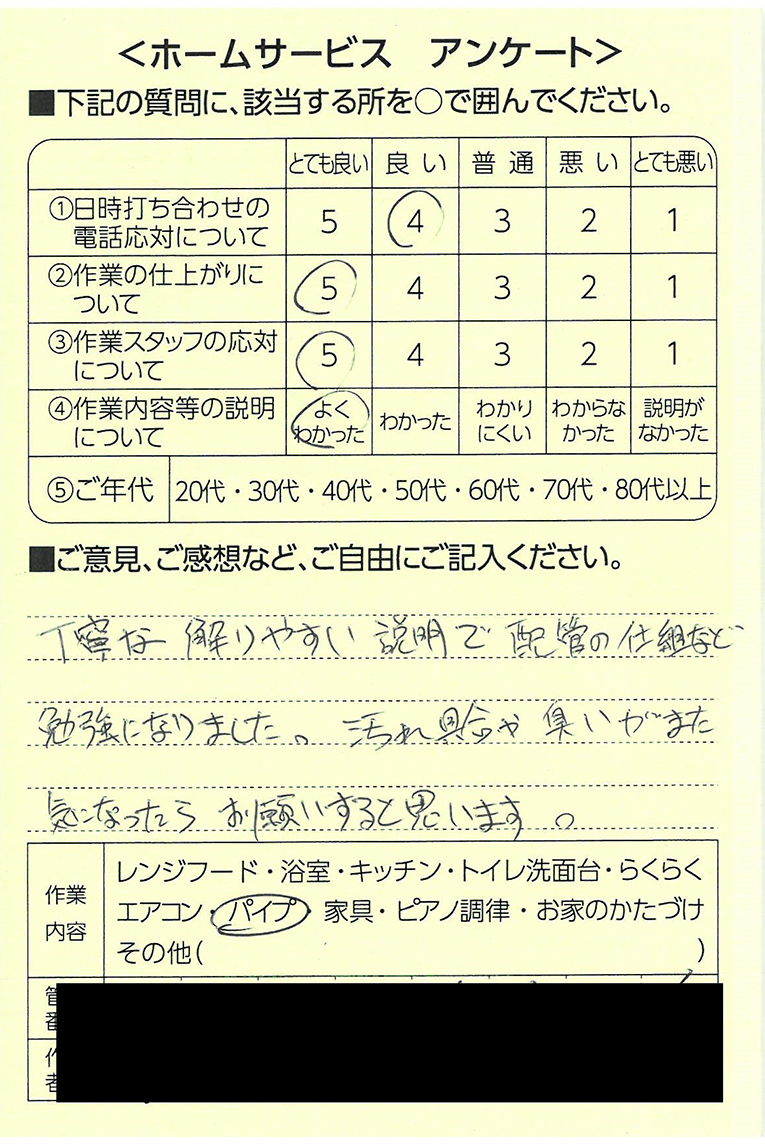 <ホームサービス アンケート>
■下記の質問に、該当する所を○で囲んでください。
とても良い 良い 普通 悪い とても悪い
①日時打ち合わせの電話応対について 5 4 3 2 1
②作業の仕上がりについて 5 4 3 2 1
③作業スタッフの応対について 5 4 3 2 1
④作業内容等の説明について よくわかった わかった わかりにくい わからなかった 説明がなかった
⑤ご年代 20代・30代・40代・50代・60代・70代・80代以上
■ご意見、ご感想など、ご自由にご記入ください。
丁寧な解りやすい説明で配管の仕組など
勉強になりました。汚れ具合や臭いがまた
気になったらお願いすると思います。
作業内容
レンジフード・浴室・キッチン・トイレ洗面台・らくらく
エアコン・パイプ・家具・ピアノ調律・お家のかたづけ
その他( )